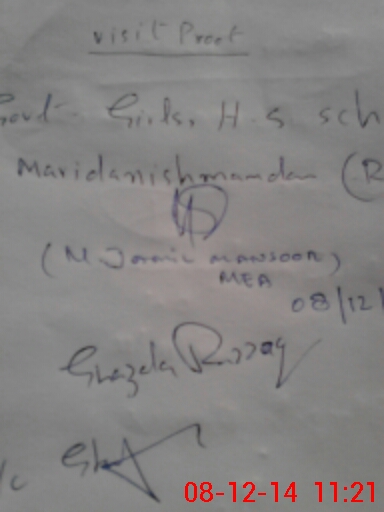 visit Proof
Govt. Girls. H. S sch
Maridanishmandan (R
(M. Jamil MANSOOR)
MEA
08/12/
Ghazala Razzaq
08-12-14 11:21